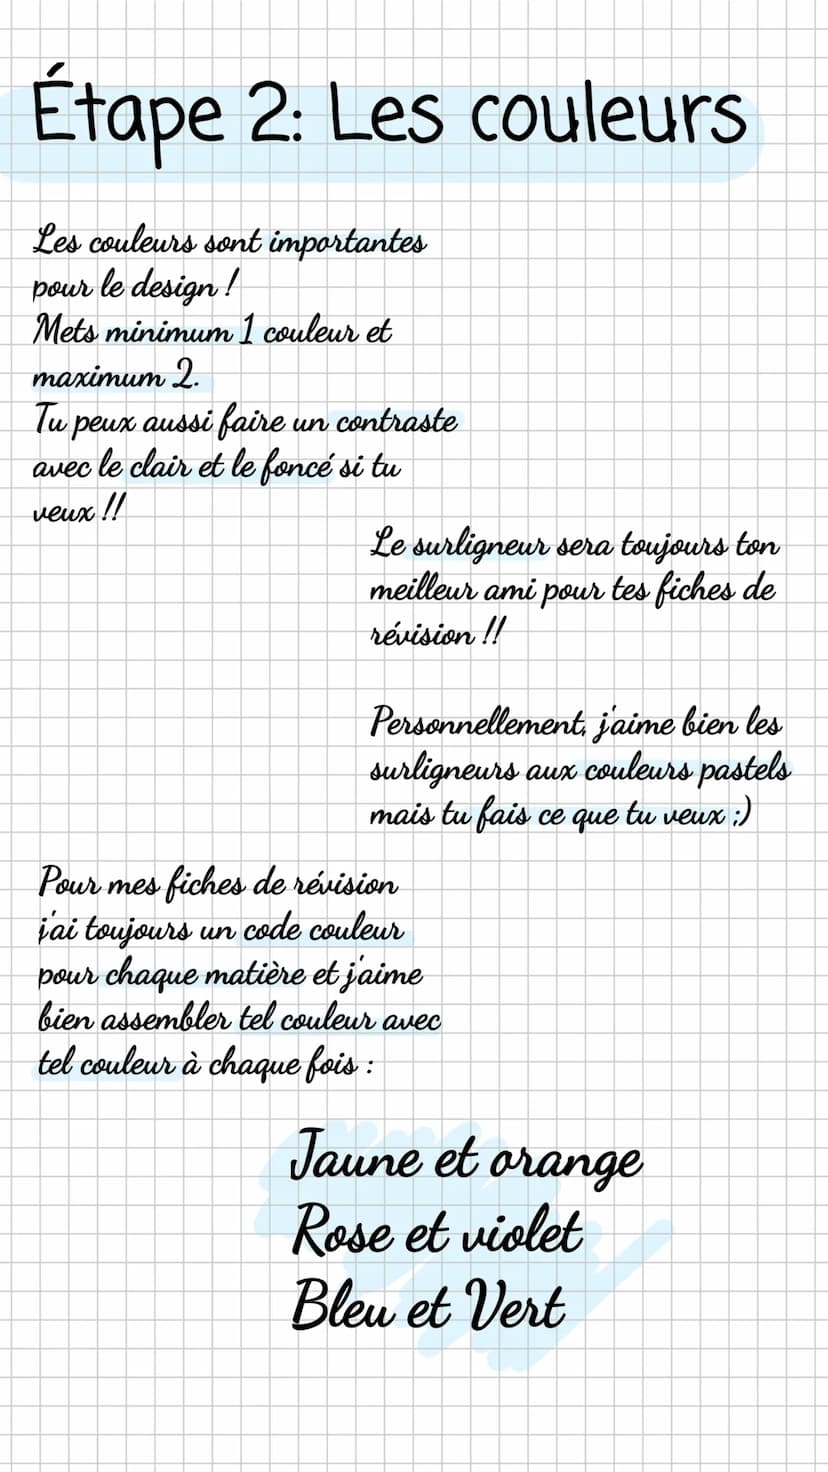 Étape 2: Les couleurs
Les couleurs sont importantes
pour le design !
Mets minimum 1 couleur et
maximum 2.
Tu peux aussi faire un contraste
avec le clair et le foncé si tu
veux !!
Le surligneur sera toujours ton
meilleur ami pour tes fiches de
révision !!
Personnellement, j'aime bien les
surligneurs aux couleurs pastels
mais tu fais ce que tu veux ;)
Pour mes fiches de révision
j'ai toujours un code couleur
pour chaque matière et j'aime
bien assembler tel couleur avec
tel couleur à chaque fois :
Jaune et orange
Rose et violet
Bleu et Vert